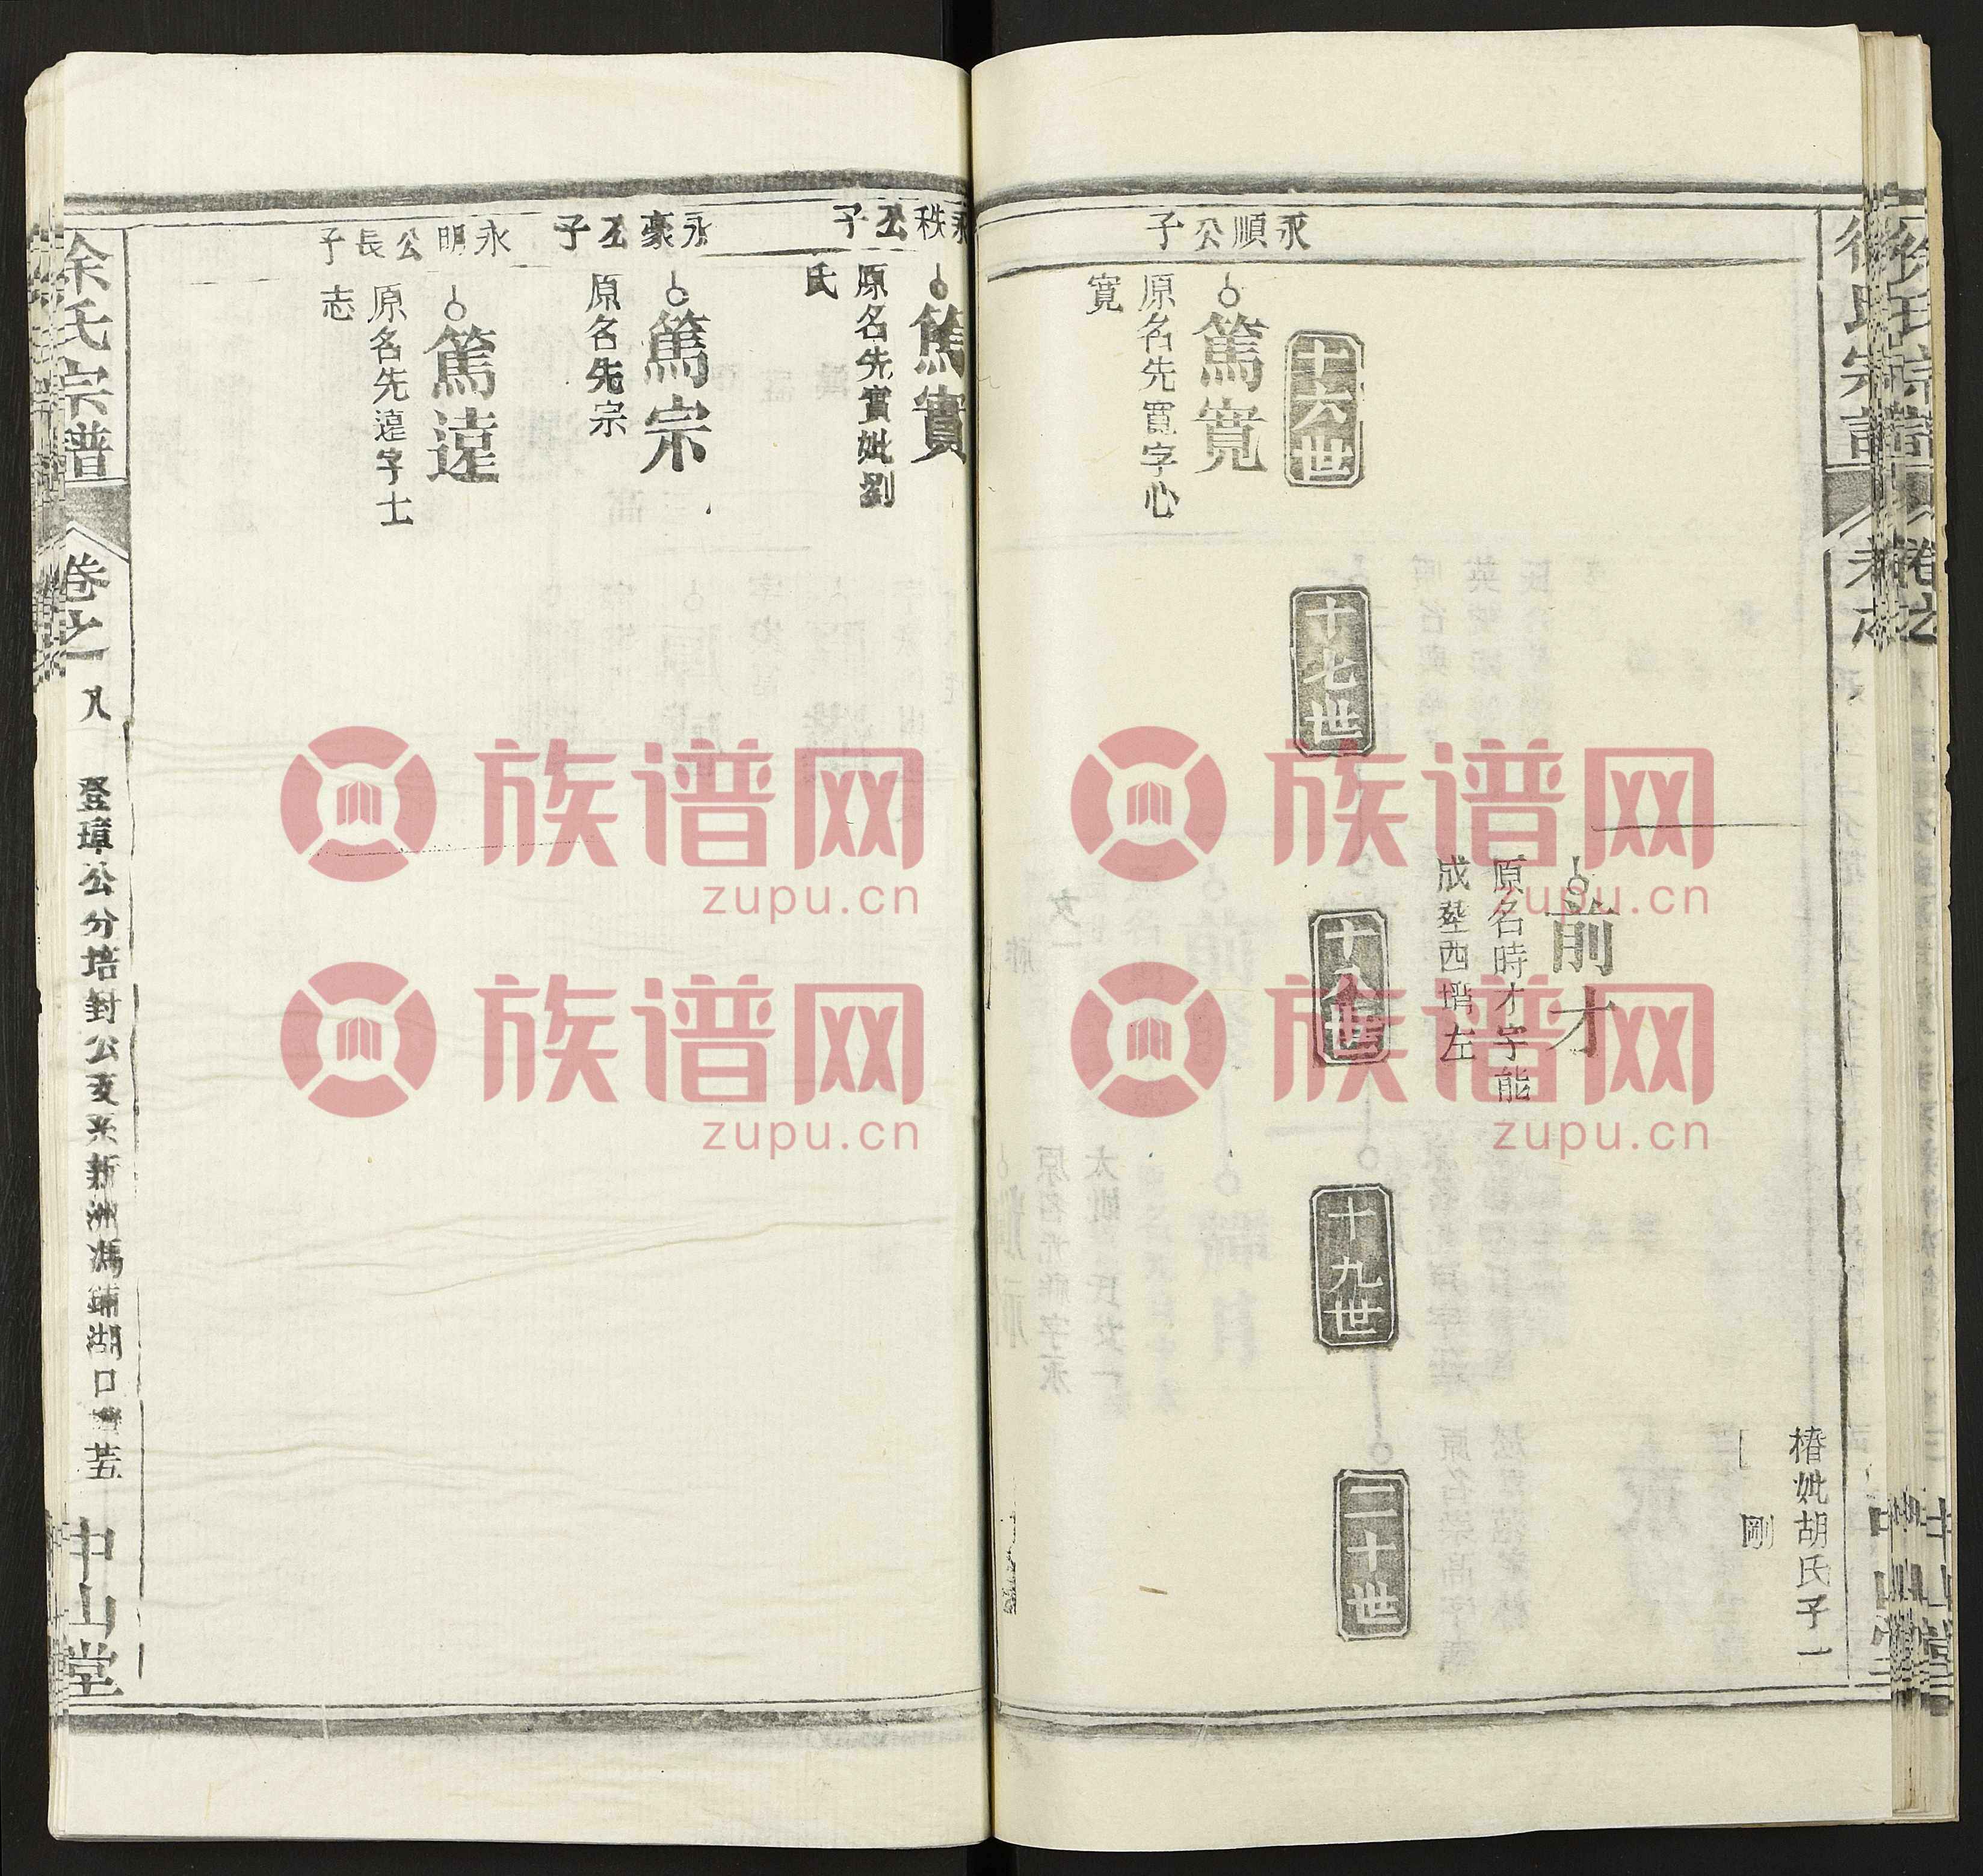 椿妣胡氏子一
剛
前才
原名時才字能
成塟西墦左
十六世
十七世
十八世
十九世
二十世
永順公子
篤寬
原名先寬字心
寬
永秩公子
篤實
原名先實妣劉
氏
永豪公子
篤宗
原名先宗
永明公長子
篤遠
原名先遠字士
志
徐氏宗譜
卷之一
八
登璋公分培對公支系新洲馮鋪湖口
中山堂
族谱网
zupu.cn
族谱网
zupu.cn
族谱网
zupu.cn
族谱网
zupu.cn